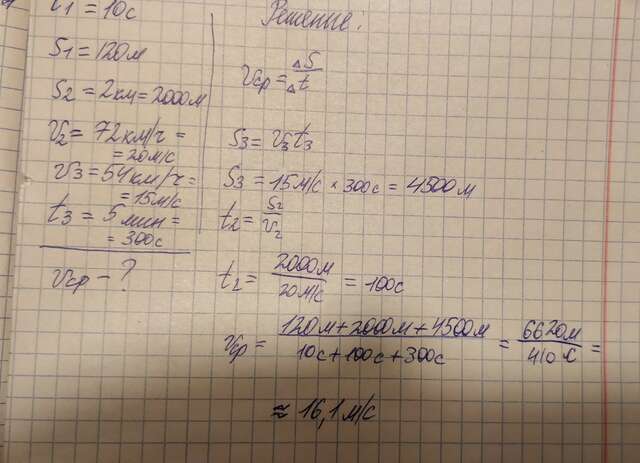 t1 = 10с
Решение.
S1 = 120м
S2 = 2км = 2000м
V2 = 72км/ч =
= 20м/с
V3 = 54км/ч =
= 15м/с
t3 = 5мин =
= 300с
Vср - ?
Vср = ΔS/Δt
S3 = V3t3
S3 = 15м/с × 300с = 4500м
t2 = S2/V2
t2 = 2000м/20м/с = 100с
Vср = 120м+2000м+4500м/10с+100с+300с = 6620м/410с =
≈ 16,1м/с